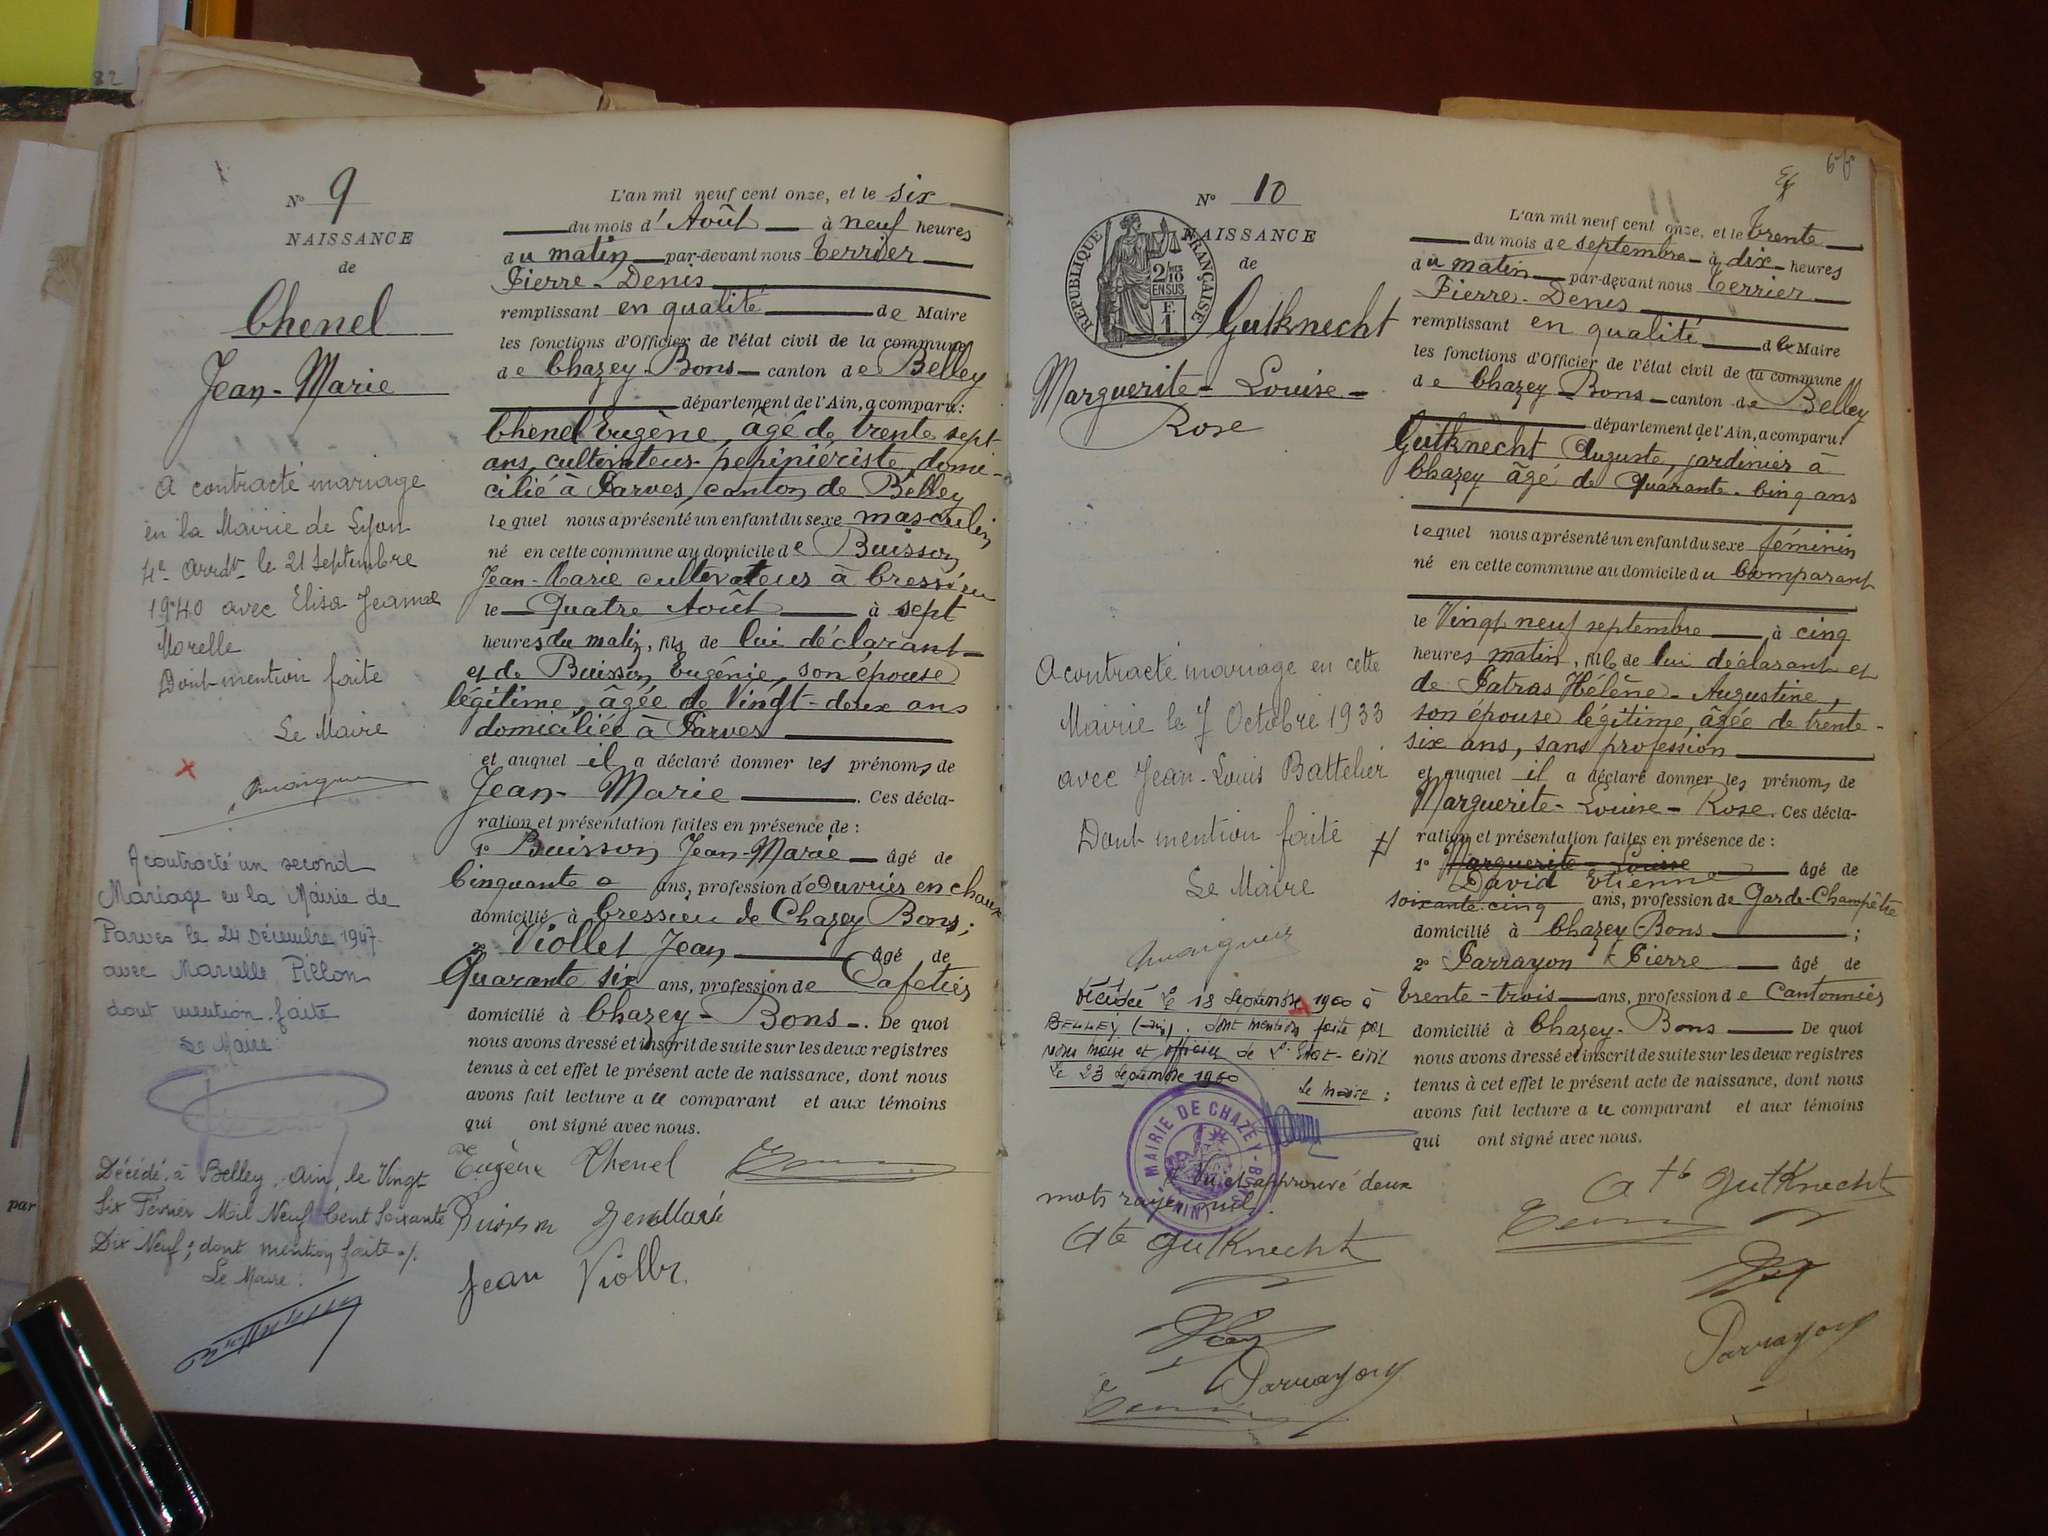 82
par
N° 9
NAISSANCE
de
Chenel
Jean-Marie
A contracté mariage
en la Mairie de Lyon
4e arrdt le 21 Septembre
1940 avec Elisa Jeanne
Morelle
Dont mention faite
Le Maire
A contracté un second
Mariage en la Mairie de
Parves le 24 Décembre 1947
avec Marcelle Pillon
dont mention faite
Le Maire
Décédé à Belley, Ain, le Vingt
Six Février Mil Neuf Cent Soixante
Dix Neuf ; dont mention faite ./.
Le Maire :
L'an mil neuf cent onze, et le six
du mois d'Août à neuf heures
du matin par-devant nous Terrier
Pierre-Denis
remplissant en qualité de Maire
les fonctions d'Officier de l'état civil de la commune
de Chazey-Bons canton de Belley
département de l'Ain, a comparu :
Chenel Eugène, âgé de trente sept
ans, cultivateur-pépinièriste, domi-
cilié à Parves, canton de Belley
lequel nous a présenté un enfant du sexe masculin
né en cette commune au domicile de Buisson
Jean-Marie cultivateur à Cressieu
le Quatre Août à sept
heures du matin, fils de lui déclarant
et de Buisson Eugénie, son épouse
légitime, âgée de Vingt-deux ans
domiciliée à Parves
et auquel il a déclaré donner les prénoms de
Jean-Marie . Ces décla-
ration et présentation faites en présence de :
1° Buisson Jean-Marie âgé de
Cinquante ans, profession d'ouvrier en chaux
domicilié à Cressieu de Chazey Bons ;
2° Viollet Jean âgé de
Quarante six ans, profession de Cafetier
domicilié à Chazey-Bons . De quoi
nous avons dressé et inscrit de suite sur les deux registres
tenus à cet effet le présent acte de naissance, dont nous
avons fait lecture au comparant et aux témoins
qui ont signé avec nous.
Eugène Chenel
Buisson Jean Marie
Jean Viollet
N° 10
NAISSANCE
de
REPUBLIQUE FRANÇAISE
2/10 EN SUS
F. 1
Gutknecht
Marguerite-Louise-
Rose
A contracté mariage en cette
Mairie le 7 Octobre 1933
avec Jean-Louis Battelier
Dont mention faite
Le Maire
Décédée le 18 Septembre 1960 à
BELLEY (Ain). dont mention faite par
nous maire et officier de l'Etat-civil
Le 23 Septembre 1960
Le maire :
MAIRIE DE CHAZEY-BONS (AIN)
Vu et approuvé deux
mots rayés nuls.
Ate Gutknecht
Parrayon
L'an mil neuf cent onze, et le trente
du mois de septembre à dix heures
du matin par-devant nous Terrier
Pierre-Denis
remplissant en qualité de Maire
les fonctions d'Officier de l'état civil de la commune
de Chazey-Bons canton de Belley
département de l'Ain, a comparu :
Gutknecht Auguste, jardinier à
Chazey âgé de Quarante-Cinq ans
lequel nous a présenté un enfant du sexe féminin
né en cette commune au domicile du Comparant
le Vingt neuf septembre à cinq
heures matin, fille de lui déclarant et
de Patras Hélène-Augustine,
son épouse légitime, âgée de trente-
six ans, sans profession
et auquel il a déclaré donner les prénoms de
Marguerite-Louise-Rose. Ces décla-
ration et présentation faites en présence de :
1° Marguerite-Louise âgé de
David Etienne
soixante-cinq ans, profession de Garde-Champêtre
domicilié à Chazey-Bons ;
2° Parrayon Pierre âgé de
trente-trois ans, profession de Cantonnier
domicilié à Chazey-Bons De quoi
nous avons dressé et inscrit de suite sur les deux registres
tenus à cet effet le présent acte de naissance, dont nous
avons fait lecture au comparant et aux témoins
qui ont signé avec nous.
Ate Gutknecht
Parrayon